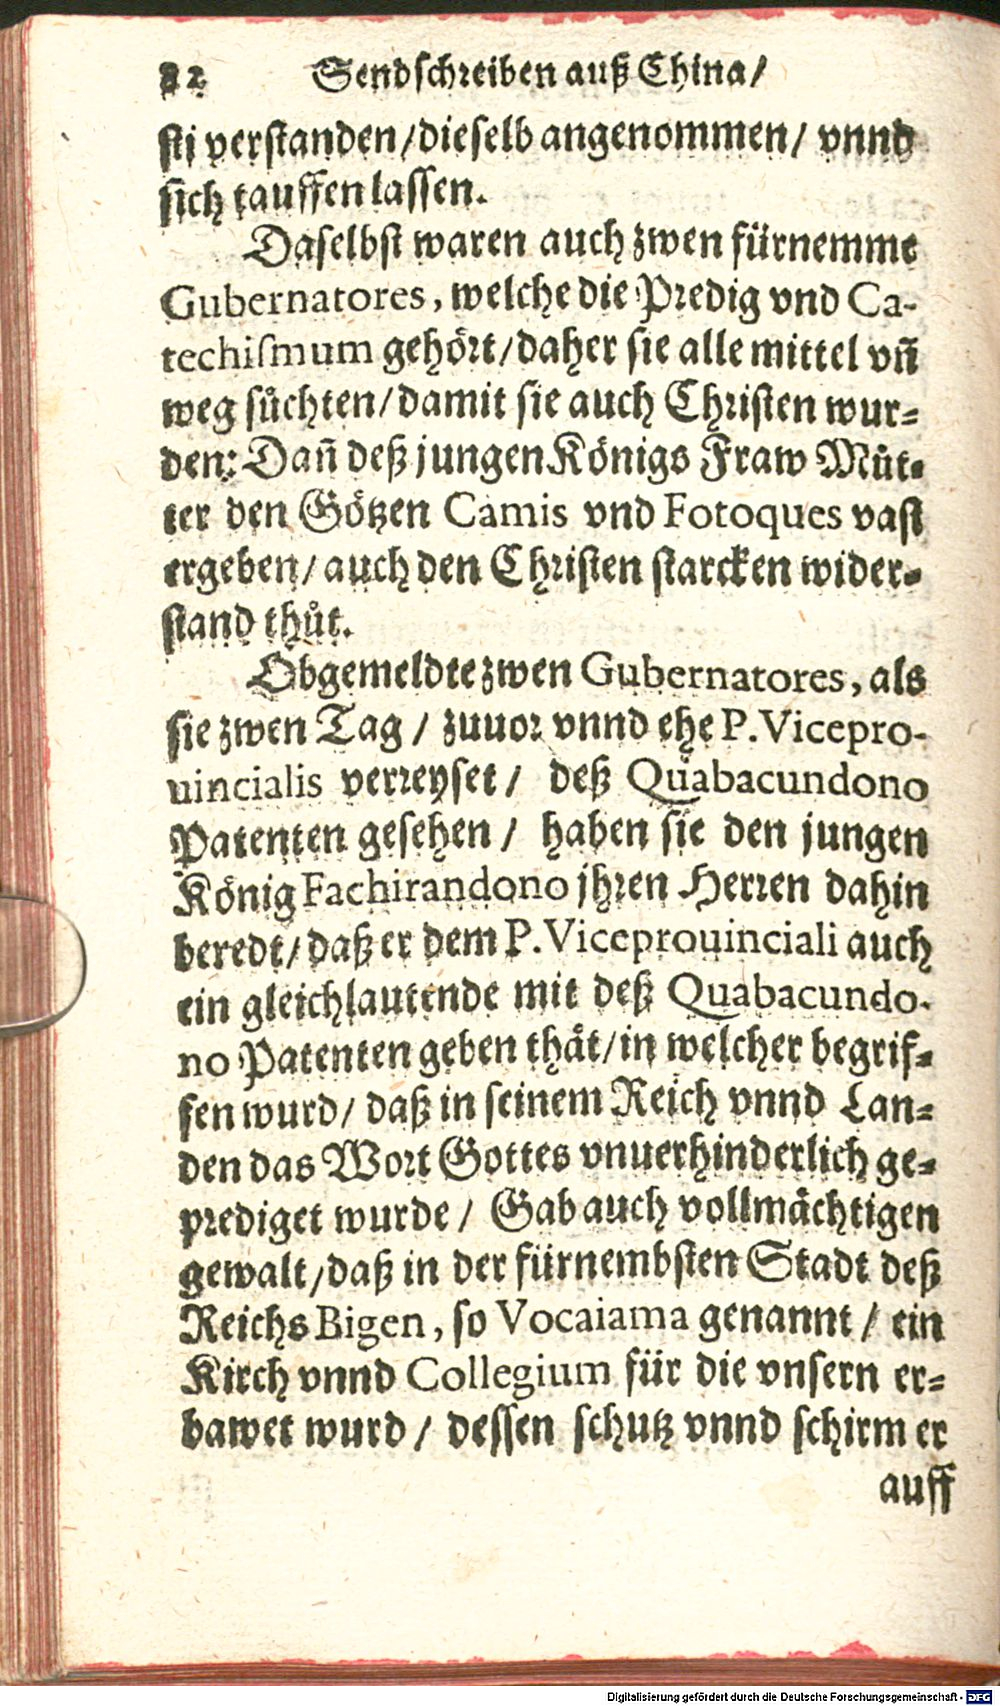 82 Sendschreiben auß China/
sti verstanden/dieselb angenommen/ vnnd
sich tauffen lassen.
Daselbst waren auch zwen fürnemme
Gubernatores, welche die Predig vnd Ca-
techismum gehört/daher sie alle mittel vñ
weg sůchten/damit sie auch Christen wur-
den: Dañ deß jungen Königs Fraw Můt-
ter den Götzen Camis vnd Fotoques vast
ergeben/auch den Christen starcken wider-
stand thůt.
Obgemeldte zwen Gubernatores, als
sie zwen Tag / zuuor vnnd ehe P. Vicepro-
uincialis verreyset / deß Quabacundono
Patenten gesehen / haben sie den jungen
König Fachirandono jhren Herren dahin
beredt/daß er dem P. Viceprouinciali auch
ein gleichlautende mit deß Quabacundo-
no Patenten geben thät/in welcher begrif-
fen wurd/ daß in seinem Reich vnnd Lan-
den das Wort Gottes vnuerhinderlich ge-
prediget wurde / Gab auch vollmächtigen
gewalt/daß in der fürnembsten Stadt deß
Reichs Bigen, so Vocaiama genannt / ein
Kirch vnnd Collegium für die vnsern er-
bawet wurd / dessen schutz vnnd schirm er
auff
Digitalisierung gefördert durch die Deutsche Forschungsgemeinschaft - DFG